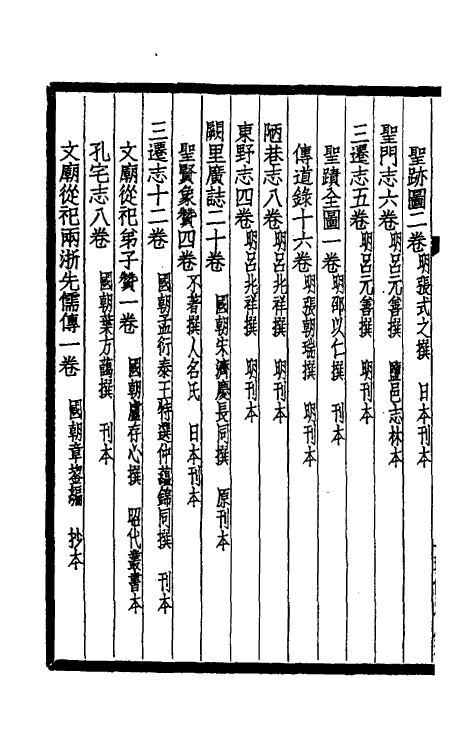 聖跡圖二卷 明張式之撰 日本刊本
聖門志六卷 明呂元善撰 鹽邑志林本
三遷志五卷 明呂元善撰 明刊本
聖蹟全圖一卷 明邵以仁撰 刊本
傳道錄十六卷 明張朝瑞撰 明刊本
陋巷志八卷 明呂兆祥撰 明刊本
東野志四卷 明呂兆祥撰 明刊本
闕里廣誌二十卷 國朝朱濟慶長同撰 原刊本
聖賢象贊四卷 不著撰人名氏 日本刊本
三遷志十二卷 國朝孟衍泰王特選仲蘊錦同撰 刊本
文廟從祀弟子贊一卷 國朝盧存心撰 昭代叢書本
孔宅志八卷 國朝葉方藹撰 刊本
文廟從祀兩浙先儒傳一卷 國朝章鋆編 抄本